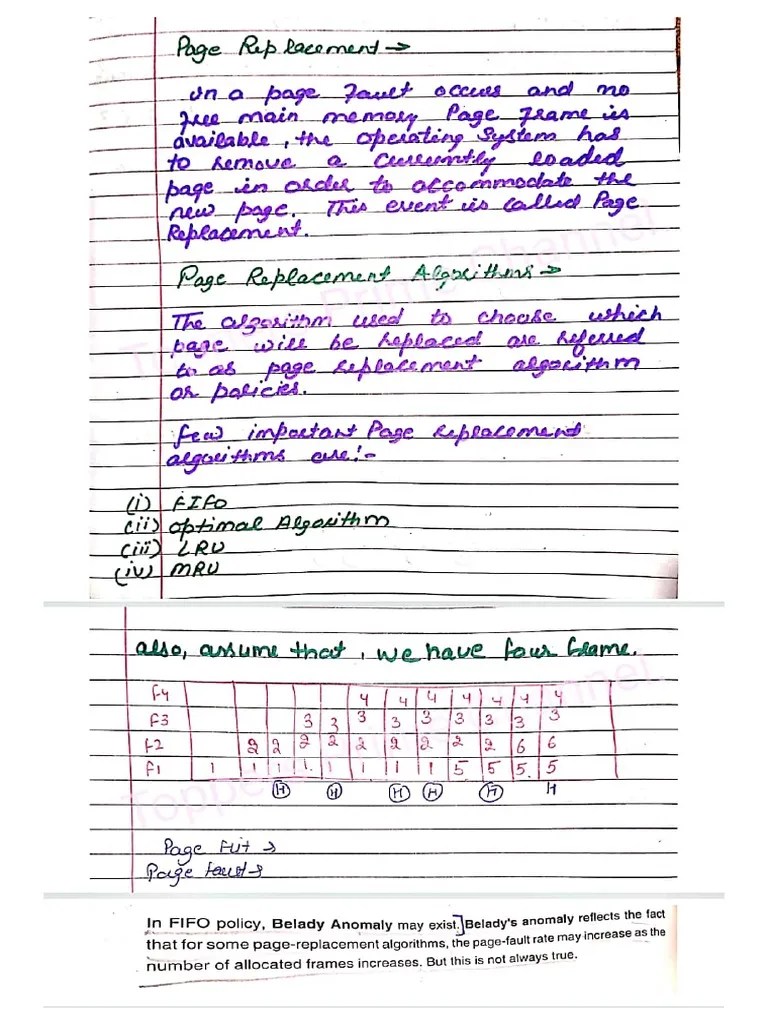 Page Replacement →
In a page Fault occurs and no
free main memory Page Frame is
available, the operating System has
to remove a currently loaded
page in order to accommodate the
new page. This event is called Page
Replacement.
Page Replacement Algorithms →
The algorithm used to choose which
page will be replaced are referred
to as page replacement algorithm
or policies.
few important Page Replacement
algorithms are:-
(i) FIFO
(ii) Optimal Algorithm
(iii) LRU
(iv) MRU
also, assume that, we have four frame.
F4 4 4 4 4 4 4 4
F3 3 3 3 3 3 3 3 3 3
F2 2 2 2 2 2 2 2 2 2 6 6
F1 1 1 1 1 1 1 1 1 5 5 5 5
H H H H H H
Page Hit →
Page Fault →
In FIFO policy, Belady Anomaly may exist. Belady's anomaly reflects the fact
that for some page-replacement algorithms, the page-fault rate may increase as the
number of allocated frames increases. But this is not always true.